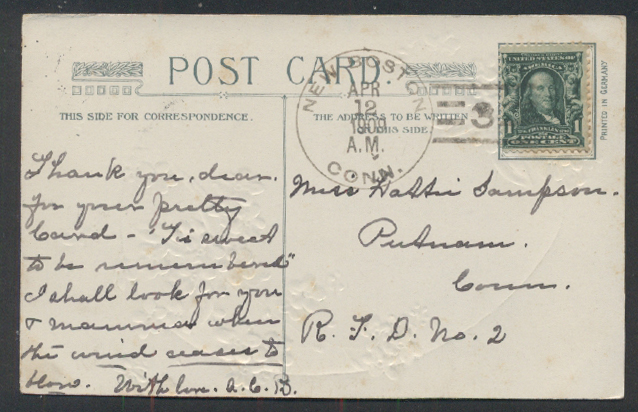 POST CARD
THIS SIDE FOR CORRESPONDENCE.
THE ADDRESS TO BE WRITTEN
ON THIS SIDE.
NEW BOSTON
APR
12
1909
A.M.
CONN.
3
UNITED STATES OF
AMERICA
1 1
FRANKLIN
POSTAGE
ONE CENT
PRINTED IN GERMANY
Thank you, dear.
for your pretty
Card - "Tis sweet
to be remembered"
I shall look for you
& mamma when
the wind ceases to
blow. With love. A.C.B.
Miss Hattie Sampson.
Putnam.
Conn.
R. F. D. No. 2